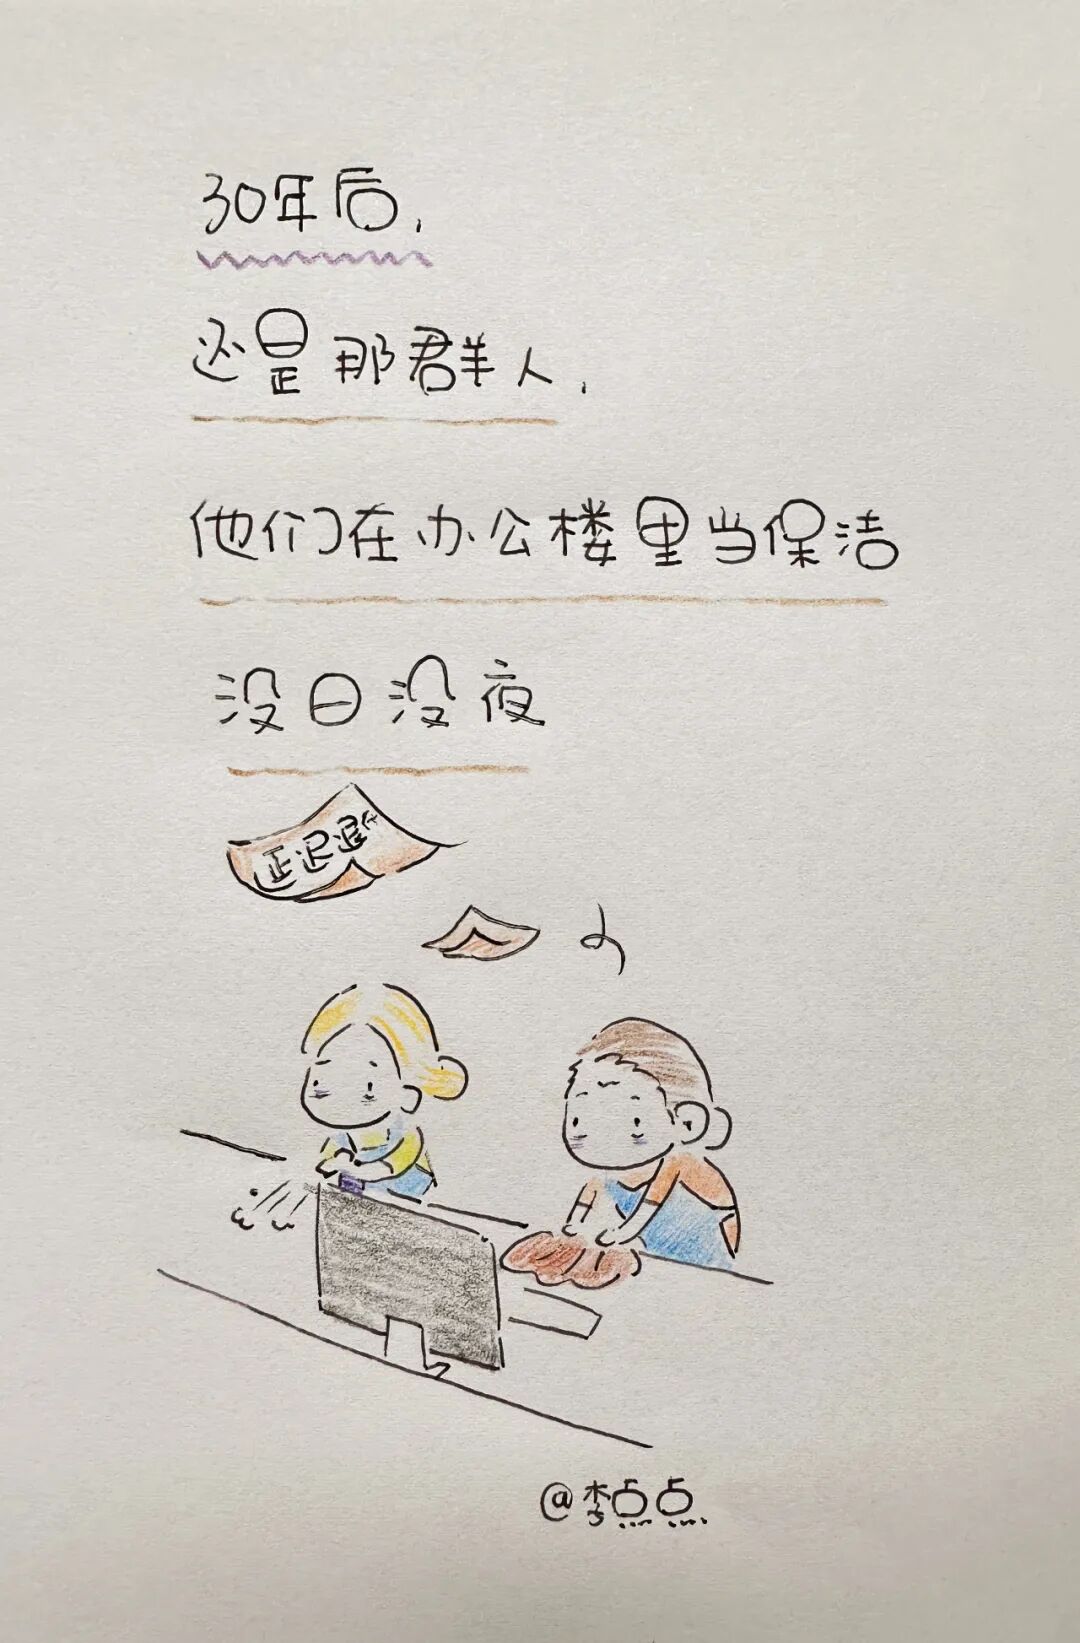 30年后,
还是那群人,
他们在办公楼里当保洁
没日没夜
延迟退休
@李点点